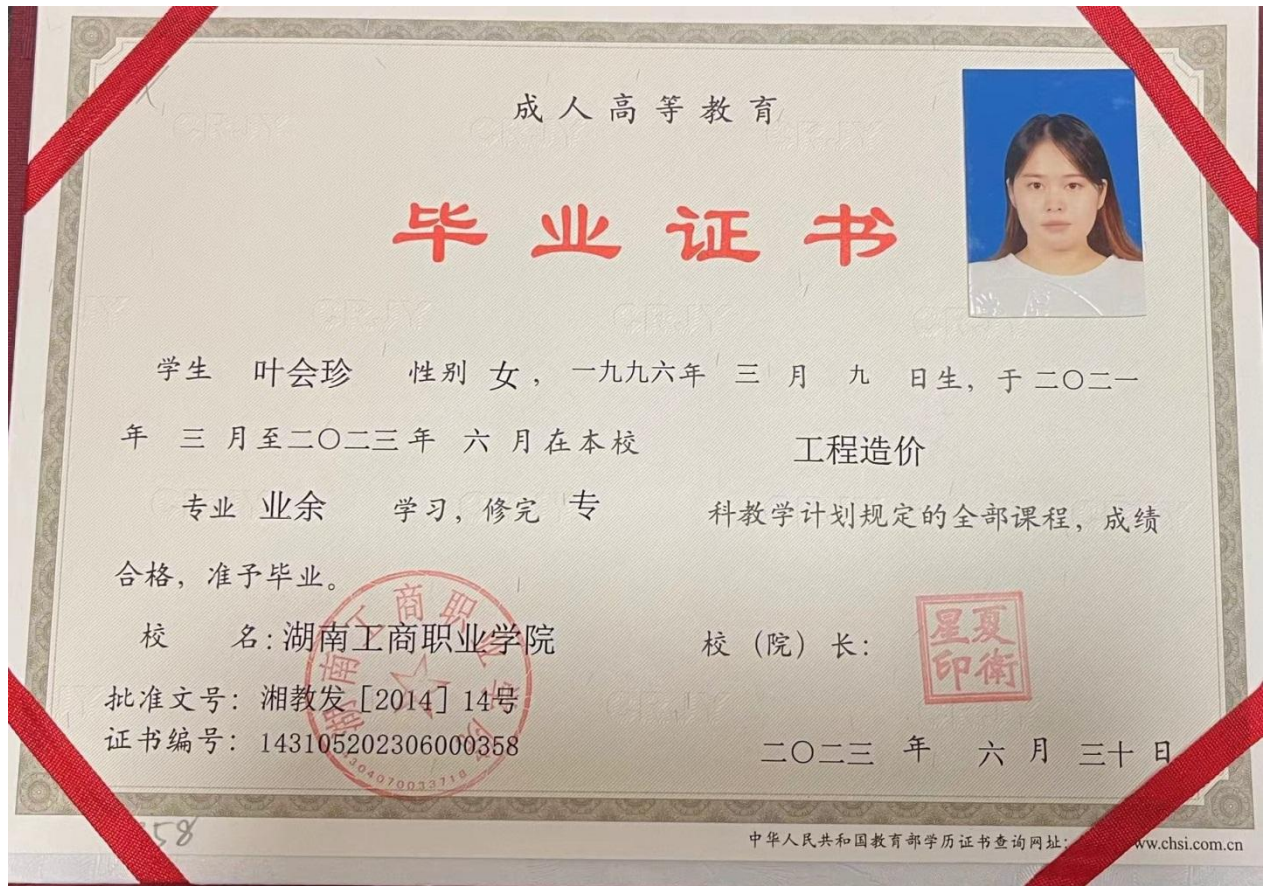 成人高等教育
毕业证书
学生 叶会珍 性别 女，一九九六年 三 月 九 日生，于二〇二一
年 三 月至二〇二三年 六 月在本校 工程造价
专业 业余 学习，修完 专 科教学计划规定的全部课程，成绩
合格，准予毕业。
校 名：湖南工商职业学院 校（院）长：
湖南工商职业学院
4304070033718
星夏
印衛
批准文号：湘教发［2014］14号
证书编号：143105202306000358
二〇二三 年 六 月 三十 日
58
中华人民共和国教育部学历证书查询网址： ww.chsi.com.cn
CRJY